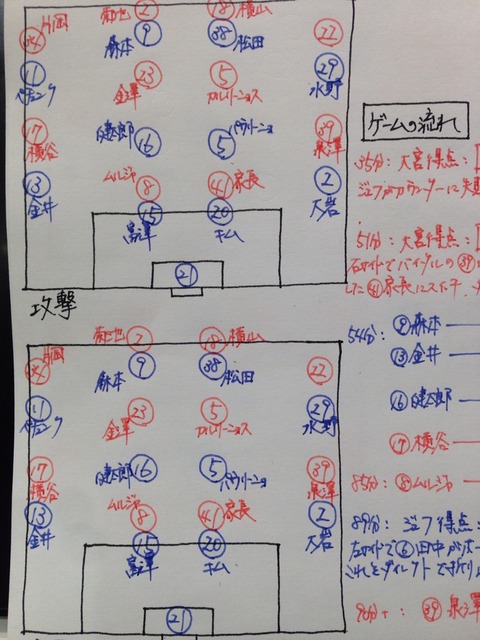 菊地 ② ⑱ 横山
片岡
㉔ ⑨ ㊳ ㉒
森本 松田
⑪ ㉓ ⑤ ㉙
ペチュニク 金澤 カルリーニョス 水野
⑰ 健太郎 ⑯ ⑤ パウリーニョ ㊴
横谷 泉澤
⑬ ムルジャ ⑧ ㊶ 家長 ②
金井 大岩
⑮ ⑳
富澤 キム
㉑
攻撃
菊地 ② ⑱ 横山
片岡
㉔ ⑨ ㊳ ㉒
森本 松田
⑪ ㉓ ⑤ ㉙
金澤 カルリーニョス 水野
⑰ 健太郎 ⑯ ⑤ パウリーニョ ㊴
横谷 泉澤
⑬ ムルジャ ⑧ ㊶ 家長 ②
金井 大岩
⑮ ⑳
富澤 キム
㉑
ゲームの流れ
35分：大宮得点：
ジェフがカウンターに失敗
51分：大宮得点：
右サイドでバイタルの㊴
した㊶家長にスイッチ、
54分：⑨森本
⑬金井
⑯健太郎
⑰横谷
85分：⑧ムルジャ
89分：ジェフ得点：
左サイドで⑥田中がボー
これをダイレクトで折り
90分+：㊴泉澤